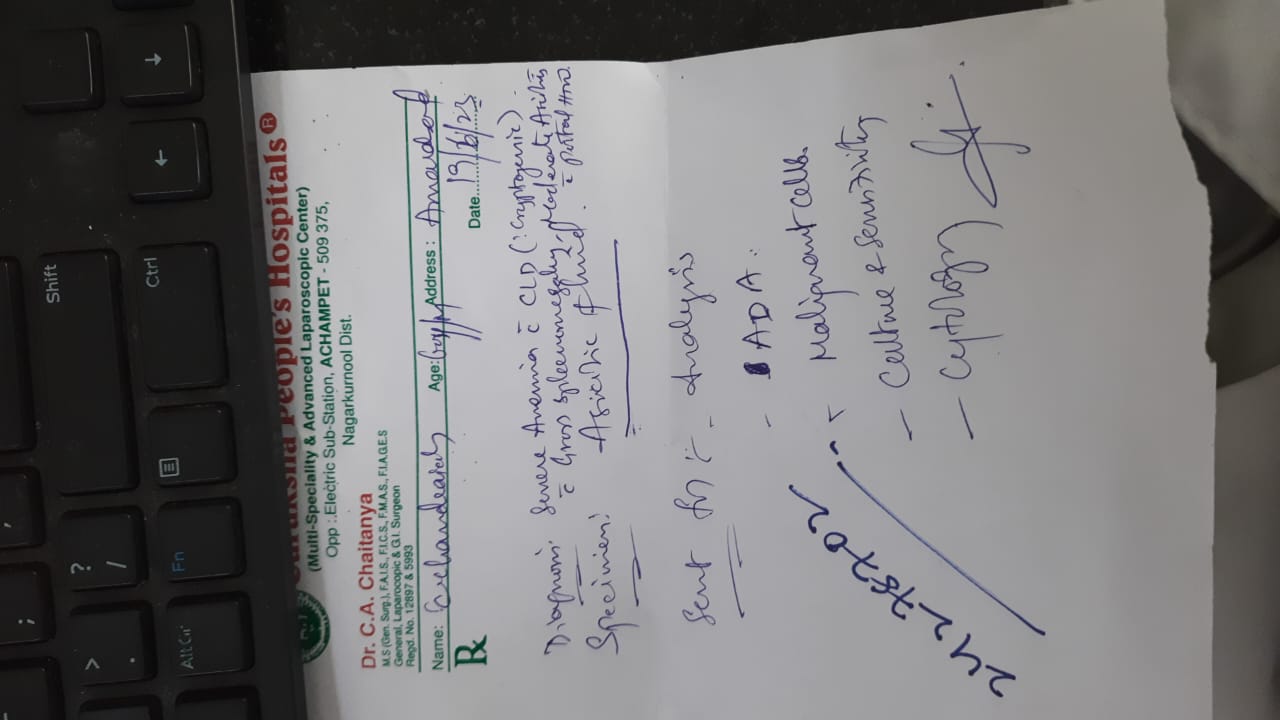 People's Hospitals®
(Multi-Speciality & Advanced Laparoscopic Center)
Opp :.Electric Sub-Station, ACHAMPET - 509 375,
Nagarkurnool Dist.
Dr. C.A. Chaitanya
M.S (Gen. Surg.), F.A.I.S., F.I.C.S., F.M.A.S., F.I.A.G.E.S
General, Laparocopic & G.I. Surgeon
Regd. No. 12897 & 5993
Name: Age: Address:
Rx Date 19/6/23
Diagnosis: Severe Anemia c̄ CLD (? Cryptogenic)
c̄ Gross Spleenomegaly, Moderate
Specimen: Asicitic fluid.
Sent for :- - Analysis
- ADA.
- Malignant cells.
- Culture & Sensitivity
- Cytology
Shift
Ctrl
Fn
Alt Gr
?
/
>
.
;
,
↓
←